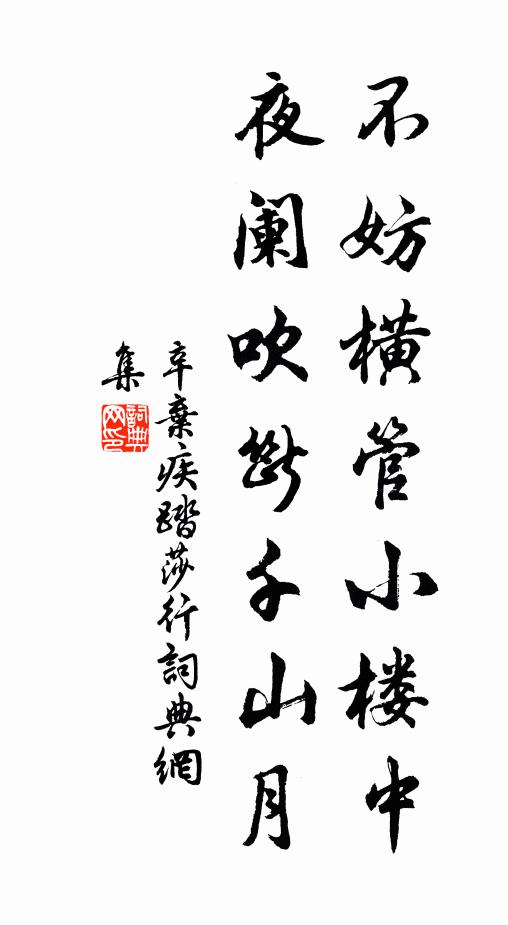 不妨横管小楼中
夜阑吹斷千山月
辛棄疾踏莎行詞典網
集
詞典
网印